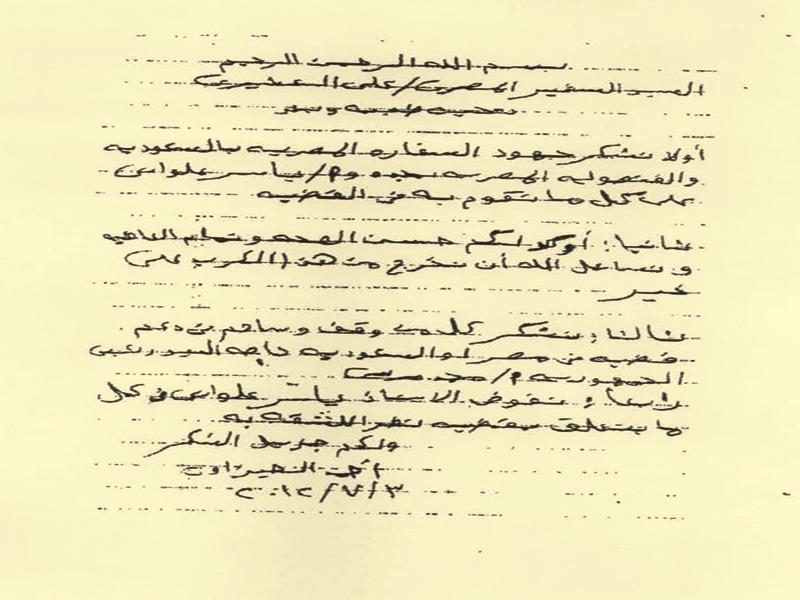 بسم الله الرحمن الرحيم
السيد السفير المصرى / على العشيرى
تحيه طيبه وبعد
أولا نشكر جهود السفاره المصريه بالسعوديه
والقنصوليه المصريه بجده و أ / ياسر علوانى
على كل ما تقوم به فى القضيه
ثانيا : أؤكد لكم حسن الصحه وتمام العافيه
و نسأل الله أن نخرج من هذا الكرب على
خير
ثالثا : نشكر كل من وقف وساهم فى دعم
قضيه فى مصر او السعوديه خاصه السيد رئيس
الجمهوريه / محمد مرسى
رابعا : نفوض الاستاذ ياسر علوانى فى كل
ما يتعلق بقضيه نظر الثقه به
ولكم جزيل الشكر
٢٠١٢/٧/٣